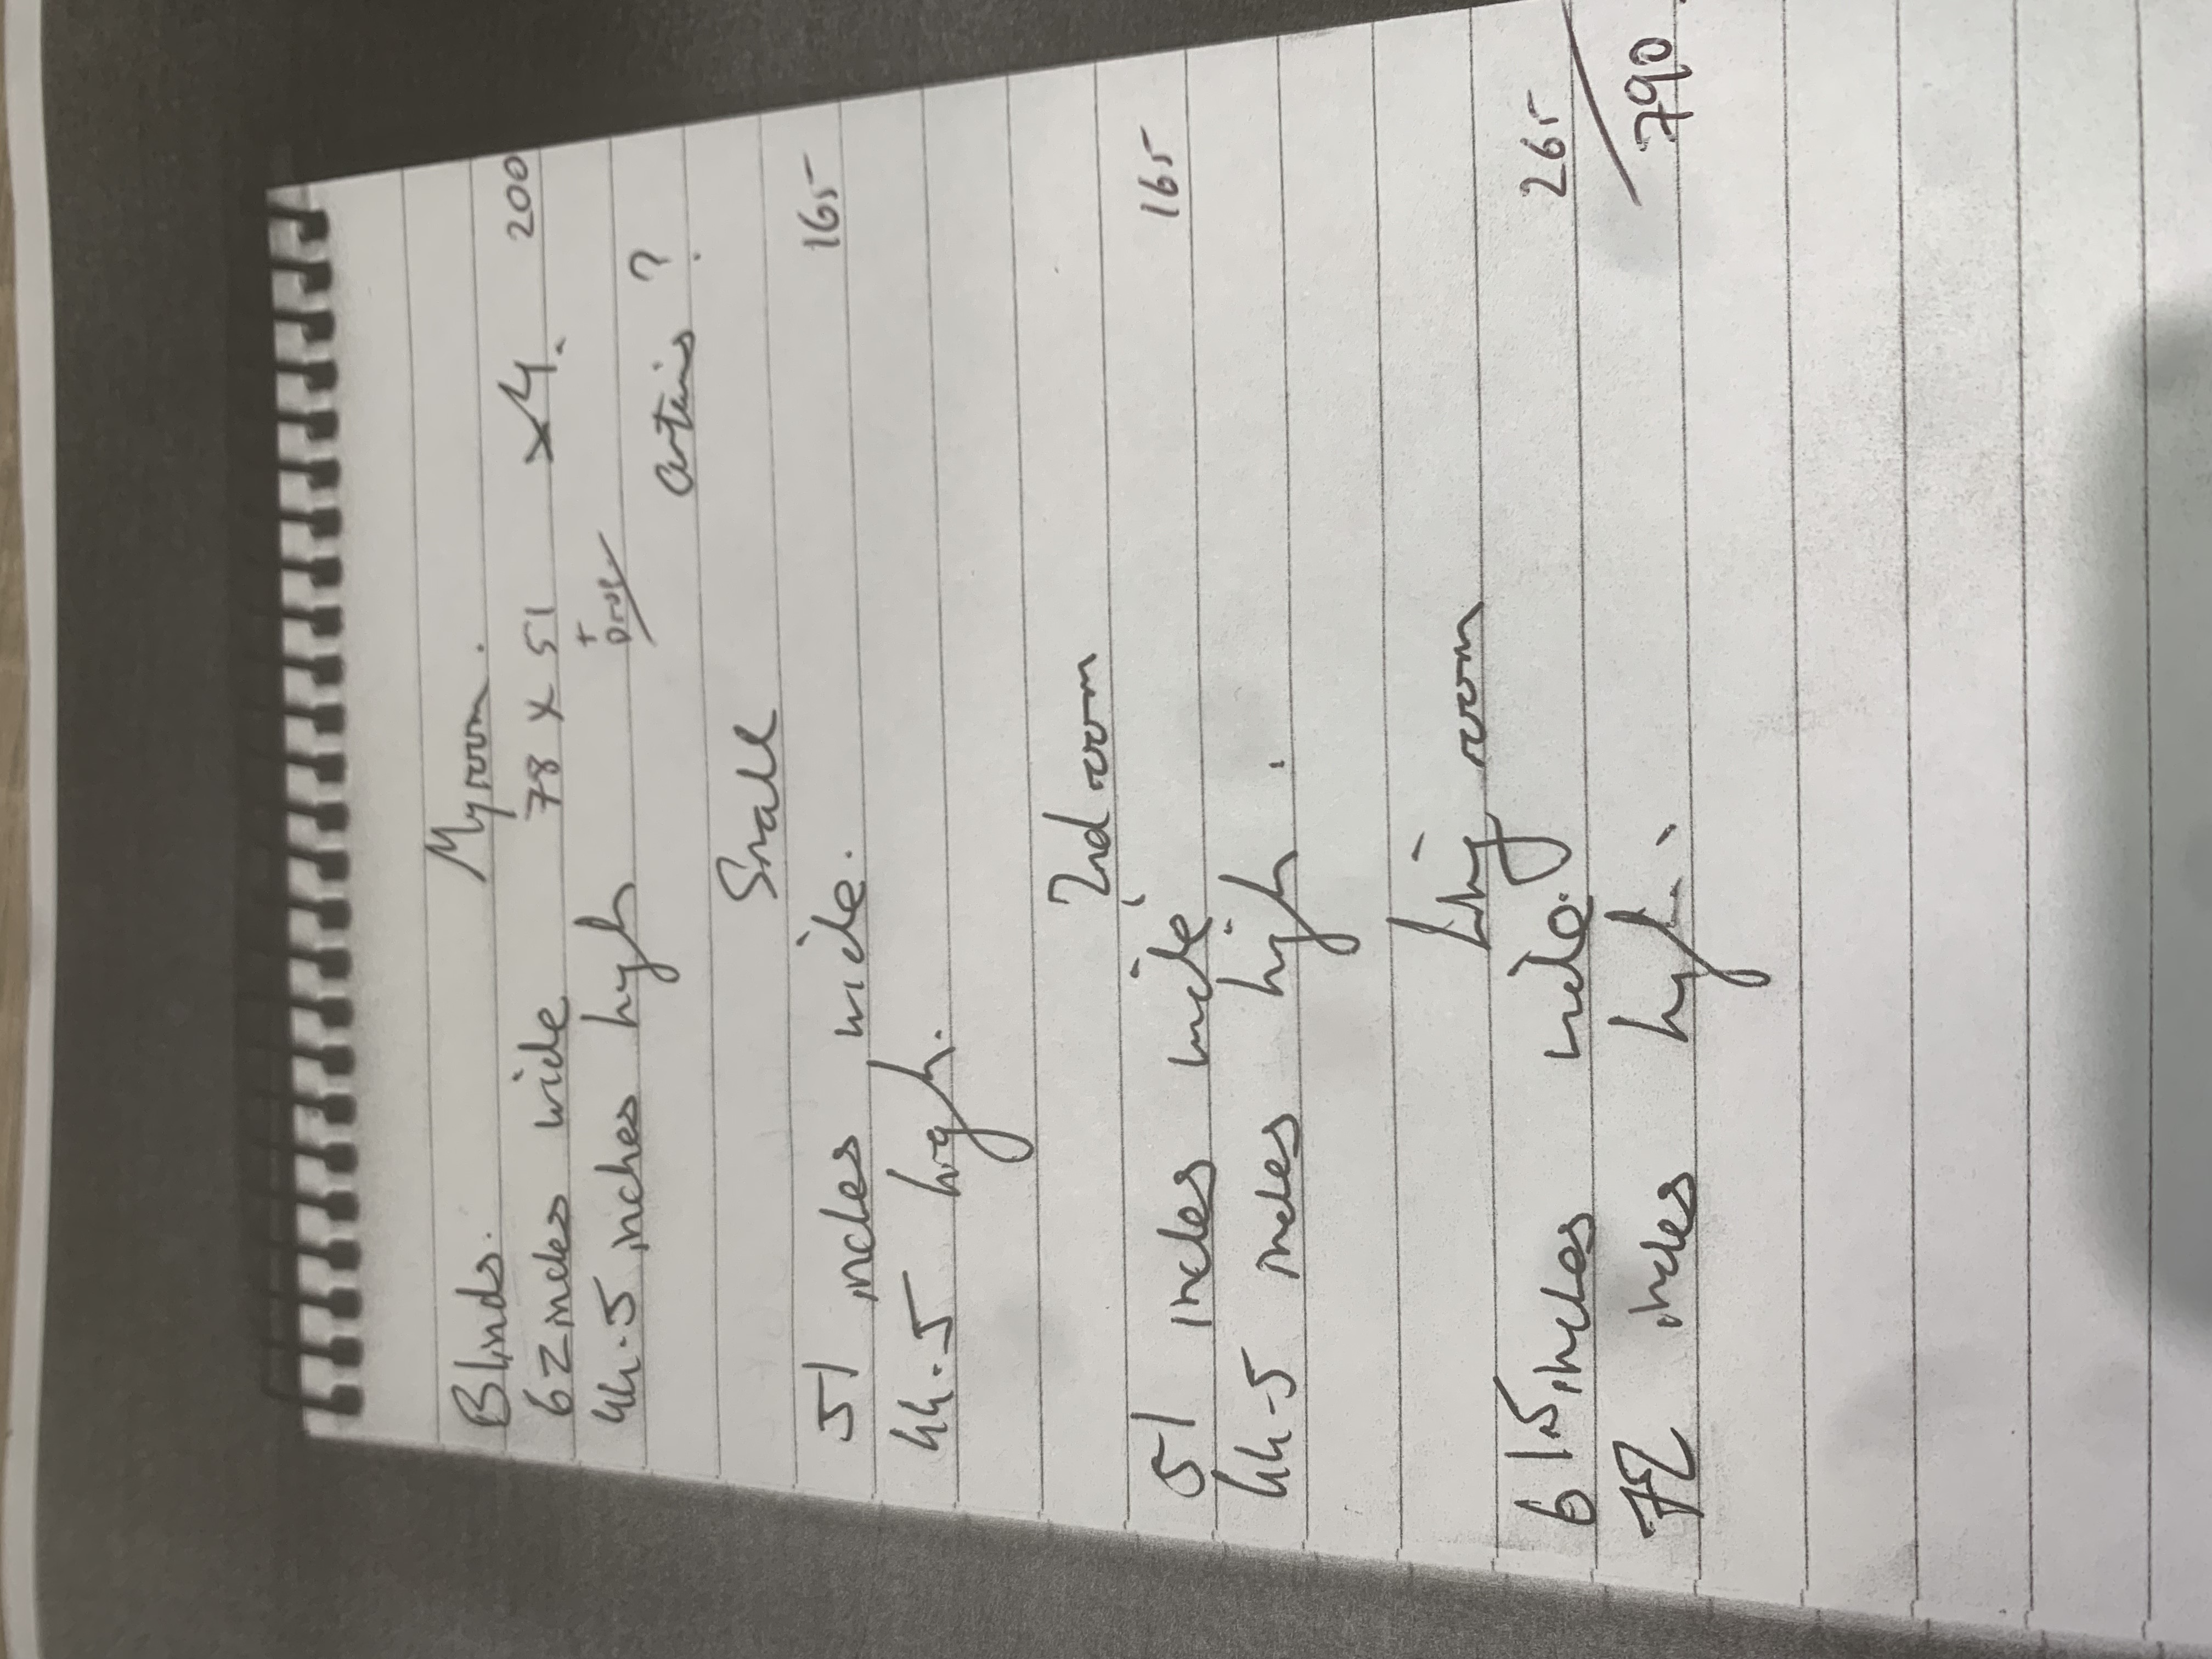 Blinds. My room.
62 inches wide 78 x 51 x4. 200
44.5 inches high +
curtains ?
Small
51 inches wide. 165
44.5 high.
2nd room
51 inches wide 165
44.5 inches high.
Living room
61.5 inches wide. 265
72 inches high.
790